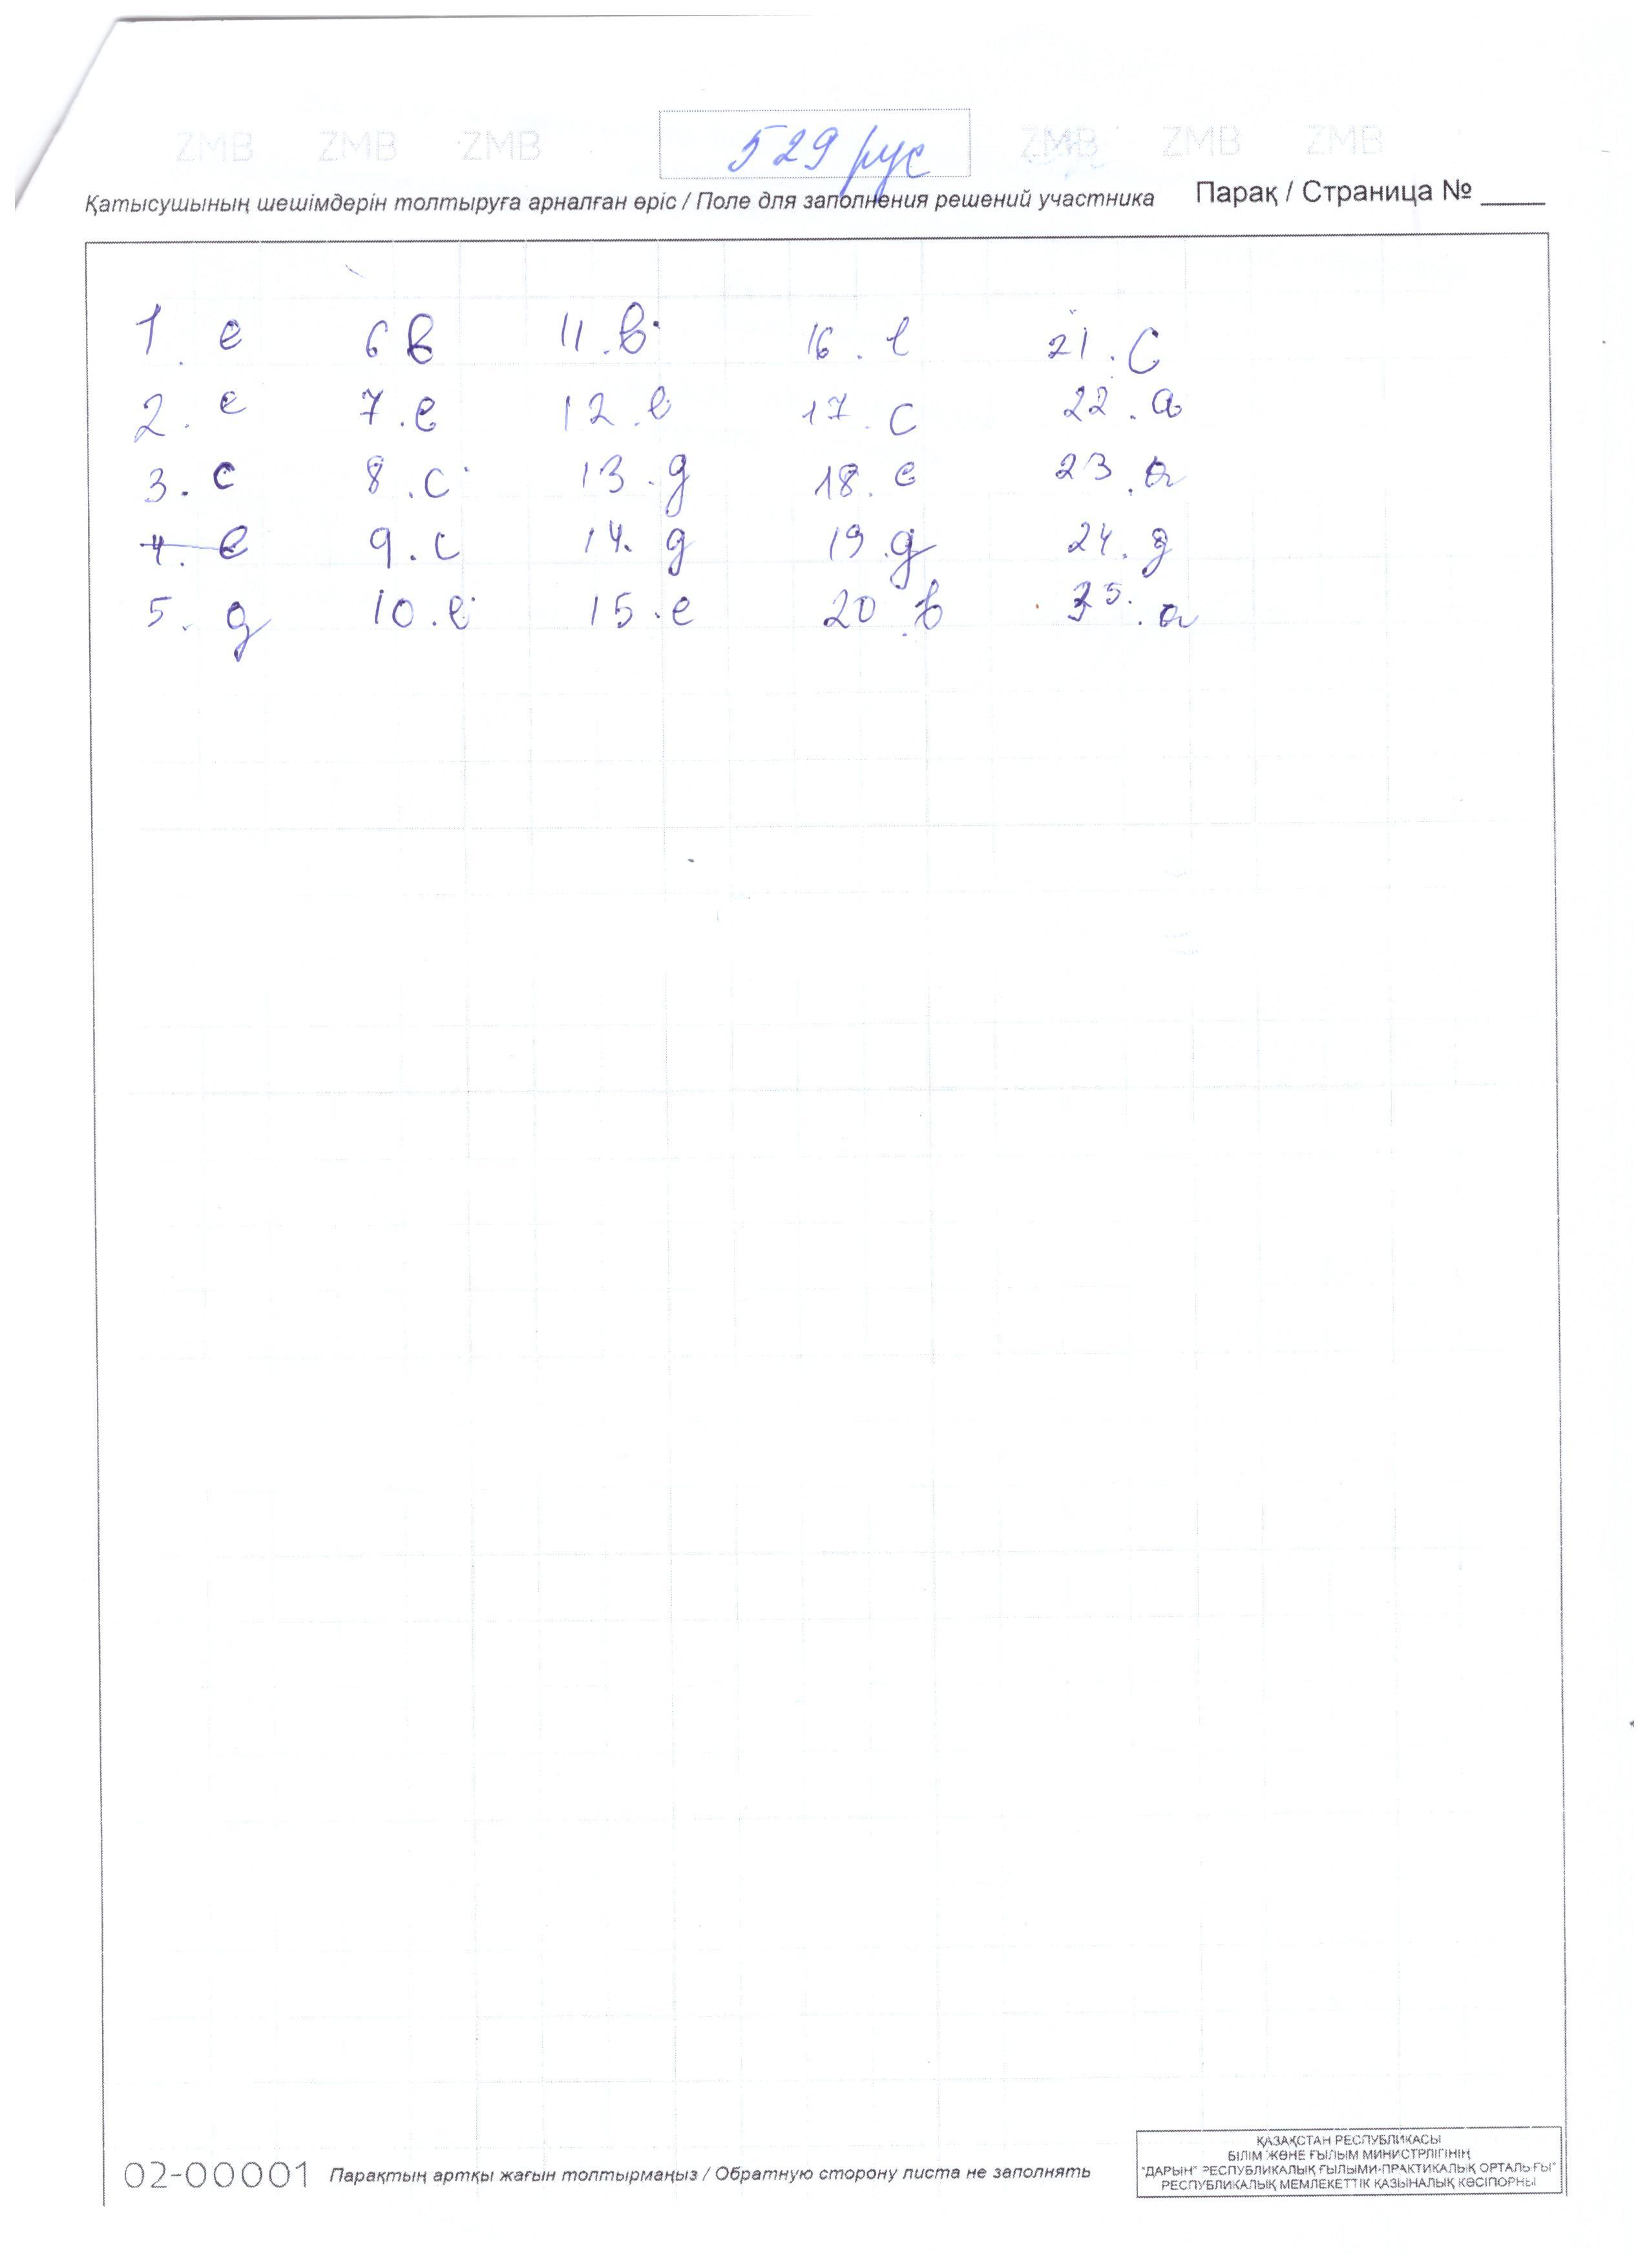 ZMB ZMB ZMB 529 рус ZMB ZMB ZMB
Қатысушының шешімдерін толтыруға арналған өріс / Поле для заполнения решений участника Парақ / Страница № ____
1. e 6 b 11. b 16. e 21. c
2. e 7. e 12. e 17. c 22. a
3. c 8. c 13. g 18. e 23. a
4. e 9. c 14. g 19. g 24. g
5. g 10. e 15. e 20. b 25. a
02-00001 Парақтың артқы жағын толтырмаңыз / Обратную сторону листа не заполнять
ҚАЗАҚСТАН РЕСПУБЛИКАСЫ
БІЛІМ ЖӘНЕ ҒЫЛЫМ МИНИСТРЛІГІНІҢ
"ДАРЫН" РЕСПУБЛИКАЛЫҚ ҒЫЛЫМИ-ПРАКТИКАЛЫҚ ОРТАЛЫҒЫ"
РЕСПУБЛИКАЛЫҚ МЕМЛЕКЕТТІК ҚАЗЫНАЛЫҚ КӘСІПОРНЫ